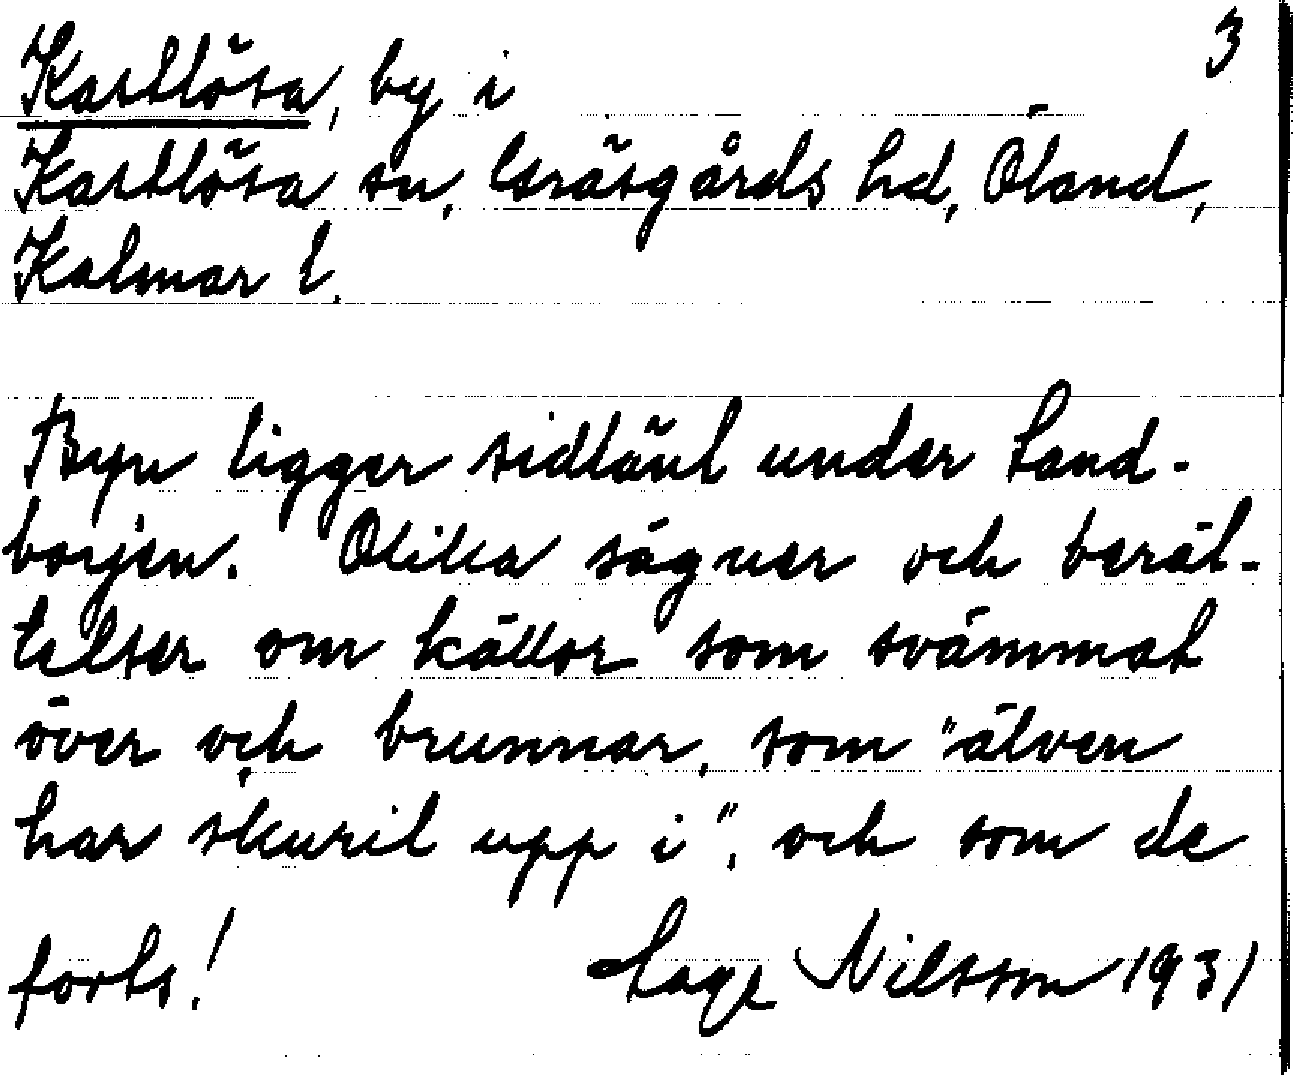 3
Kastlösa, by i
Kastlösa sn, Gräsgårds hd, Öland,
Kalmar l.
Byn ligger sidlänt under Land-
borjen. Olika sägner och berät-
telser om källor som svämmat
över och brunnar, som "älven
har skurit upp i", och som de
forts! Lage Nilsson 1931